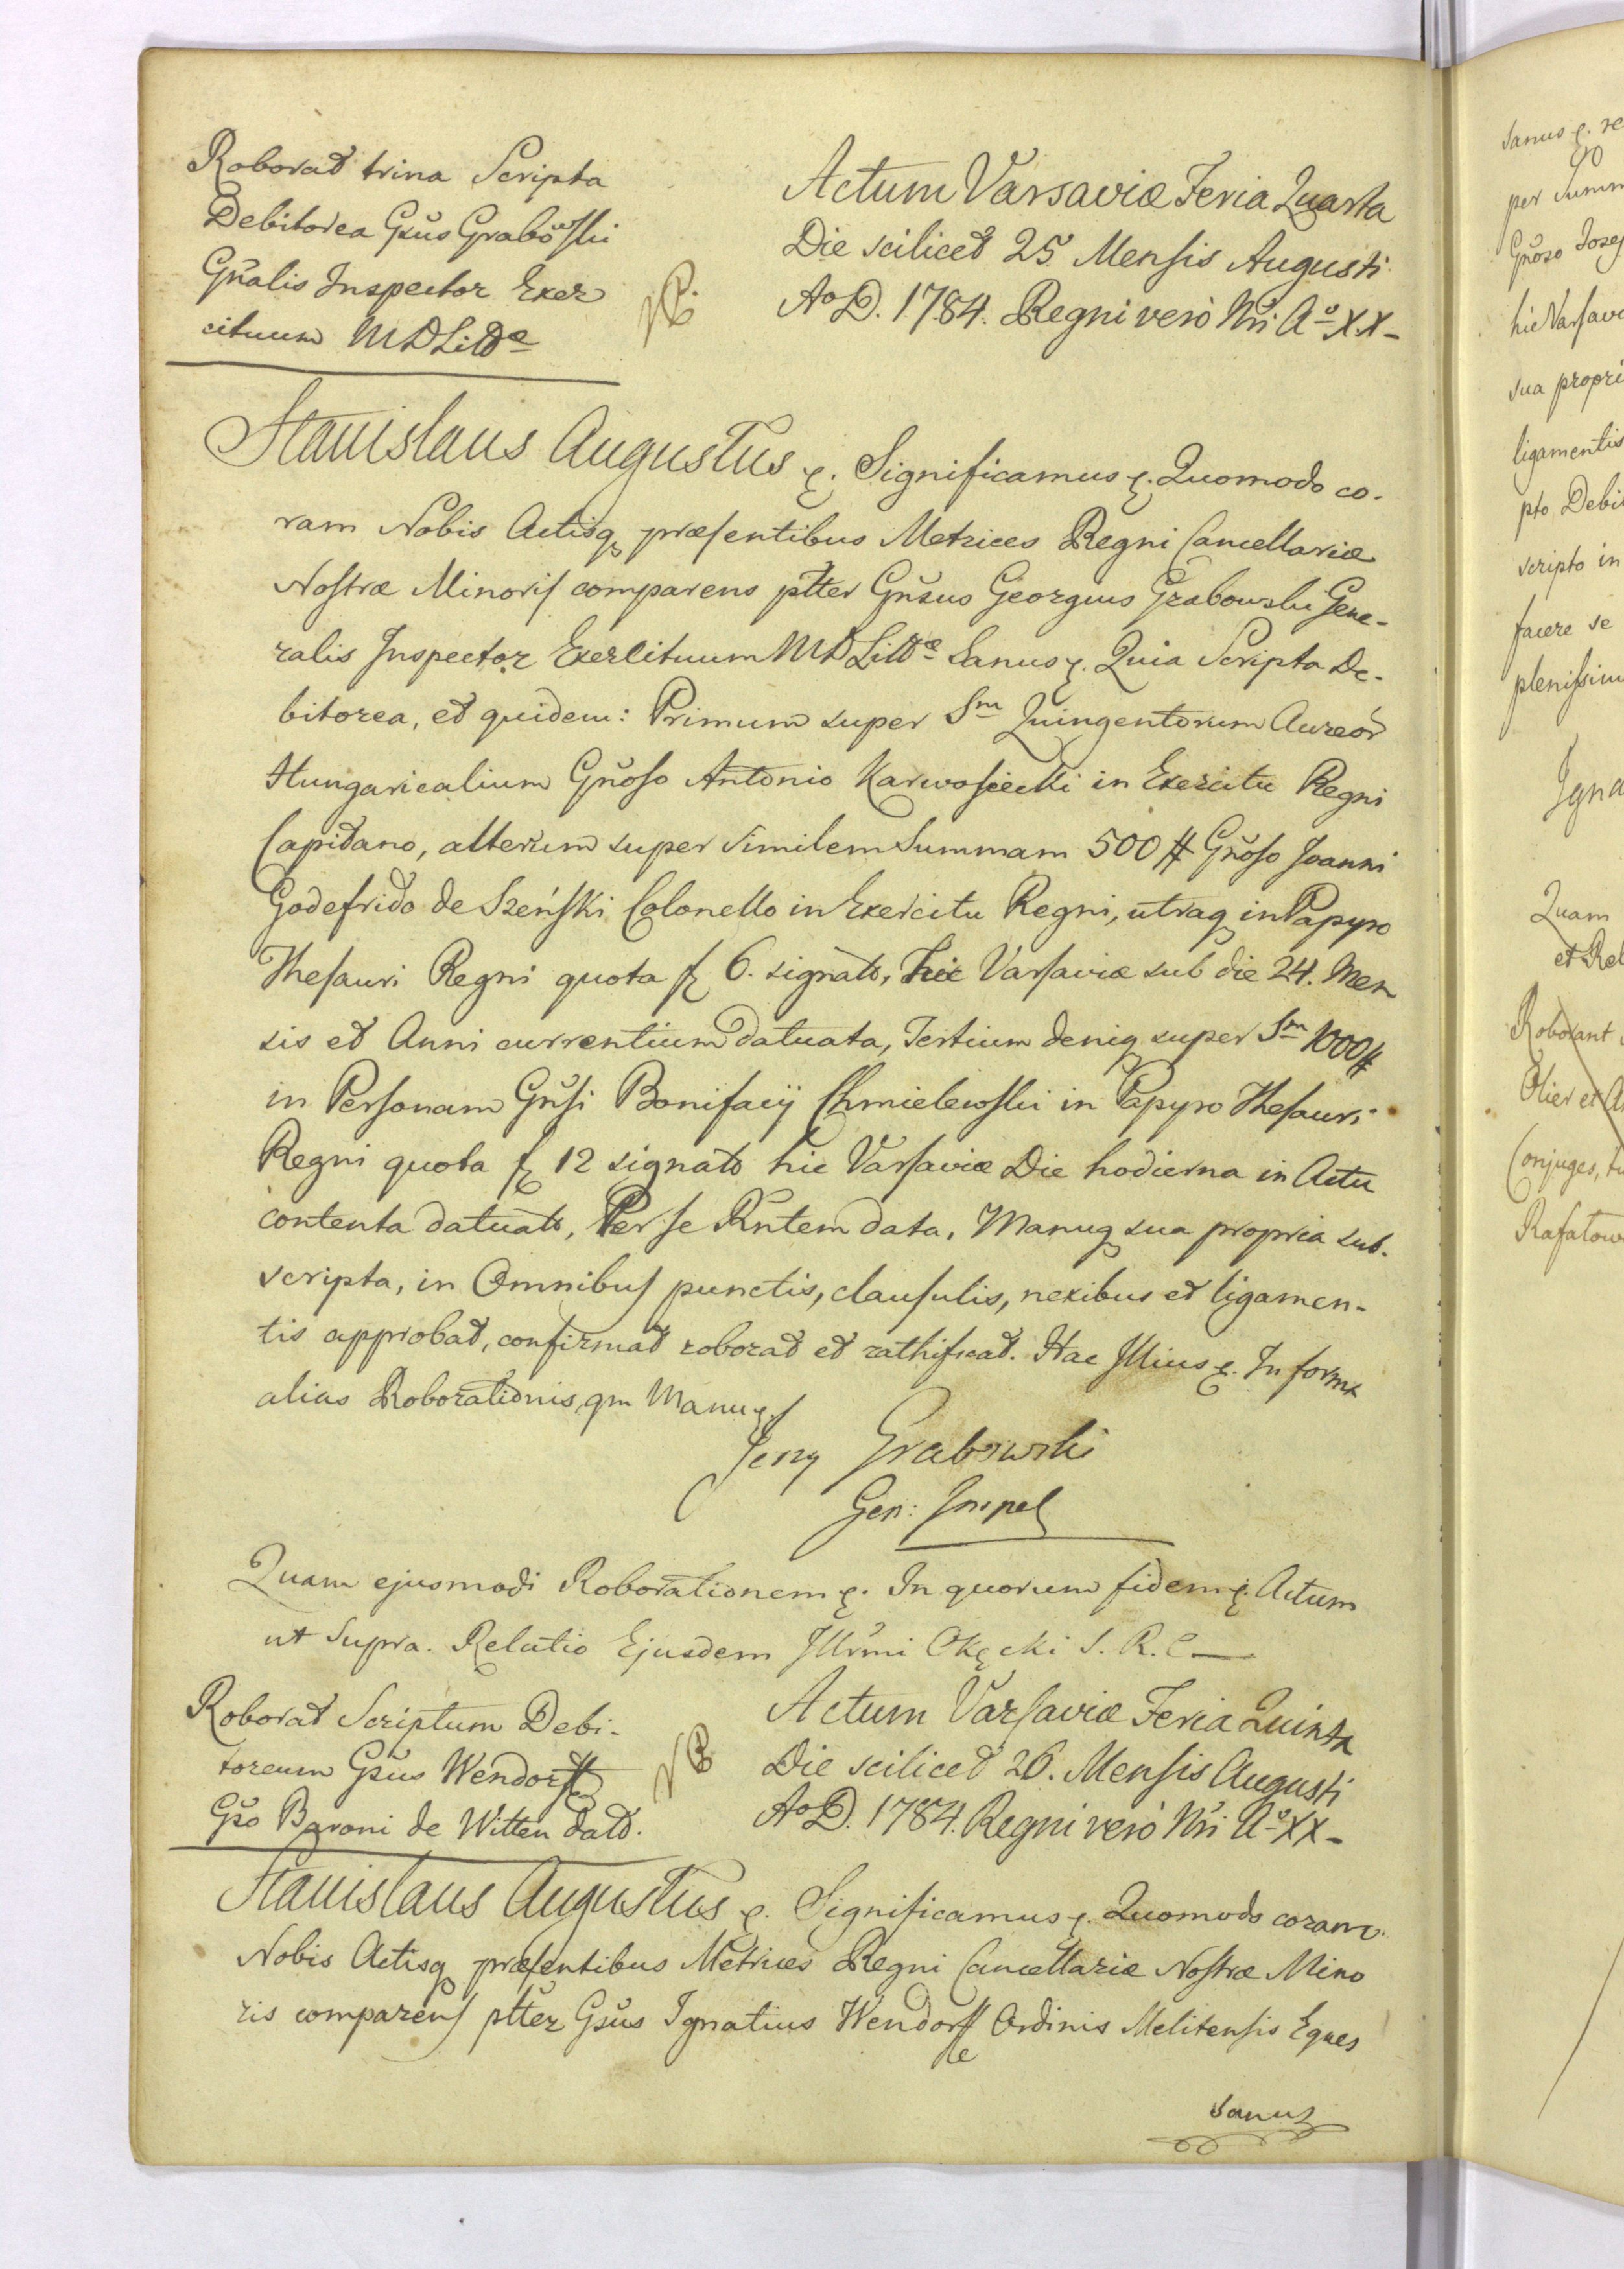 Roborat trina Scripta
Debitorea Gsus Grabowski
Gnalis Inspector Exer
cituum MDLittæ
NB.
Actum Varsaviæ Feria Quarta
Die scilicet 25 Mensis Augusti
Ao D. 1784. Regni vero Nri Ao XX-
Stanislaus Augustus &. Significamus &. Quomodo co-
ram Nobis Actisq præsentibus Metrices Regni Cancellariæ
Nostræ Minoris comparens ptter Gnsus Georgius Grabowski Gene-
ralis Inspector Exercituum MD Littæ Sanus &. Quia Scripta De-
bitorea, et quidem: Primum super Sm Quingentorum Aureor
Hungaricalium Gnoso Antonio Karwosiecki in Exercitu Regni
Capitano, alterum super similem Summam 500 # Gnoso Joanni
Godefrido de Szeński Colonello in Exercitu Regni, utraq in Papyro
Thesauri Regni quota f 6. signato, hic Varsaviæ sub die 24. Men
sis et Anni currentium datuata, Tertium deniq super Sm 1000 #
in Personam Gnsi Bonifacij Chmielewski in Papyro Thesauri
Regni quota f 12 signato hic Varsaviæ Die hodierna in Actu
contenta datuato, Per se Rntem data, Manuq sua propria sub-
scripta, in Omnibus punctis, clausulis, nexibus et ligamen-
tis approbat, confirmat roborat et rathificat. Hac Illius &. In forma
alias Roborationis, qm Manu &.
Jerzy Grabowski
Gen: Inspek
Quam ejusmodi Roborationem &. In quorum fidem &. Actum
ut Supra. Relatio Ejusdem Illrmi Okęcki S. R. C
Roborat Scriptum Debi-
toreum Gsus Wendorff
Gso Baroni de Witten datt.
NB
Actum Varsaviæ Feria Quinta
Die scilicet 26. Mensis Augusti
Ao D. 1784. Regni vero Nri Ao XX-
Stanislaus Augustus &. Significamus &. Quomodo coram
Nobis Actisq præsentibus Metrices Regni Cancellariæ Nostræ Mino
ris comparens ptter Gsus Ignatius Wendorff Ordinis Melitensis Eques
Sanus
Sanus &. re
per Summ
Gnoso Josep
hic Varsav
sua propri
ligamentis
pto Debi
scripto in
facere se
plenissim
Igna
Quam
et Rel
Roborant
Olier et A
Conjuges,
Rafatow